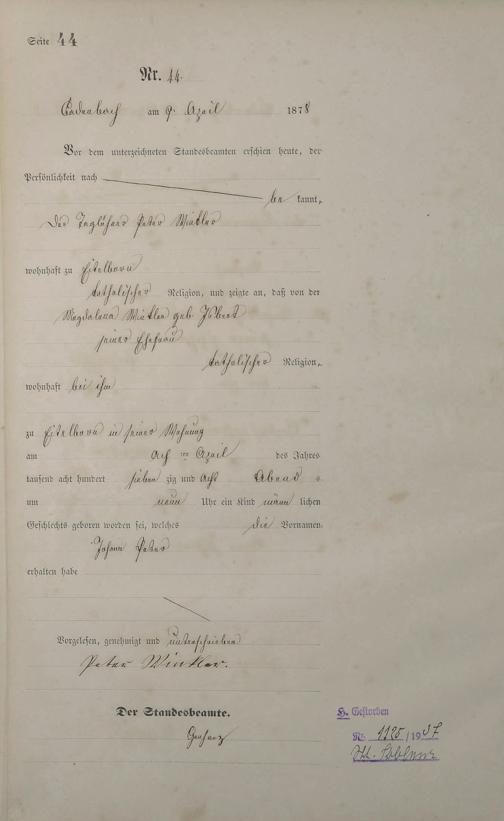 Seite 44
Nr. 44.
Cadenbach am 9. April 1878
Vor dem unterzeichneten Standesbeamten erschien heute, der
Persönlichkeit nach
be kannt,
Der Taglöhner Peter Winkler
wohnhaft zu Eitelborn
katholischer Religion, und zeigte an, daß von der
Magdalena Winkler geb.
seiner Ehefrau
katholischer Religion,
wohnhaft bei ihm
zu Eitelborn in seiner Wohnung
am acht ten April des Jahres
tausend acht hundert sieben zig und acht Abends
um neun Uhr ein Kind männ lichen
Geschlechts geboren worden sei, welches die Vornamen
Johann Peter
erhalten habe
Vorgelesen, genehmigt und unterschrieben
Peter Winkler.
Der Standesbeamte.
H. Gestorben
Nr. 1125/1937
StA. Koblenz